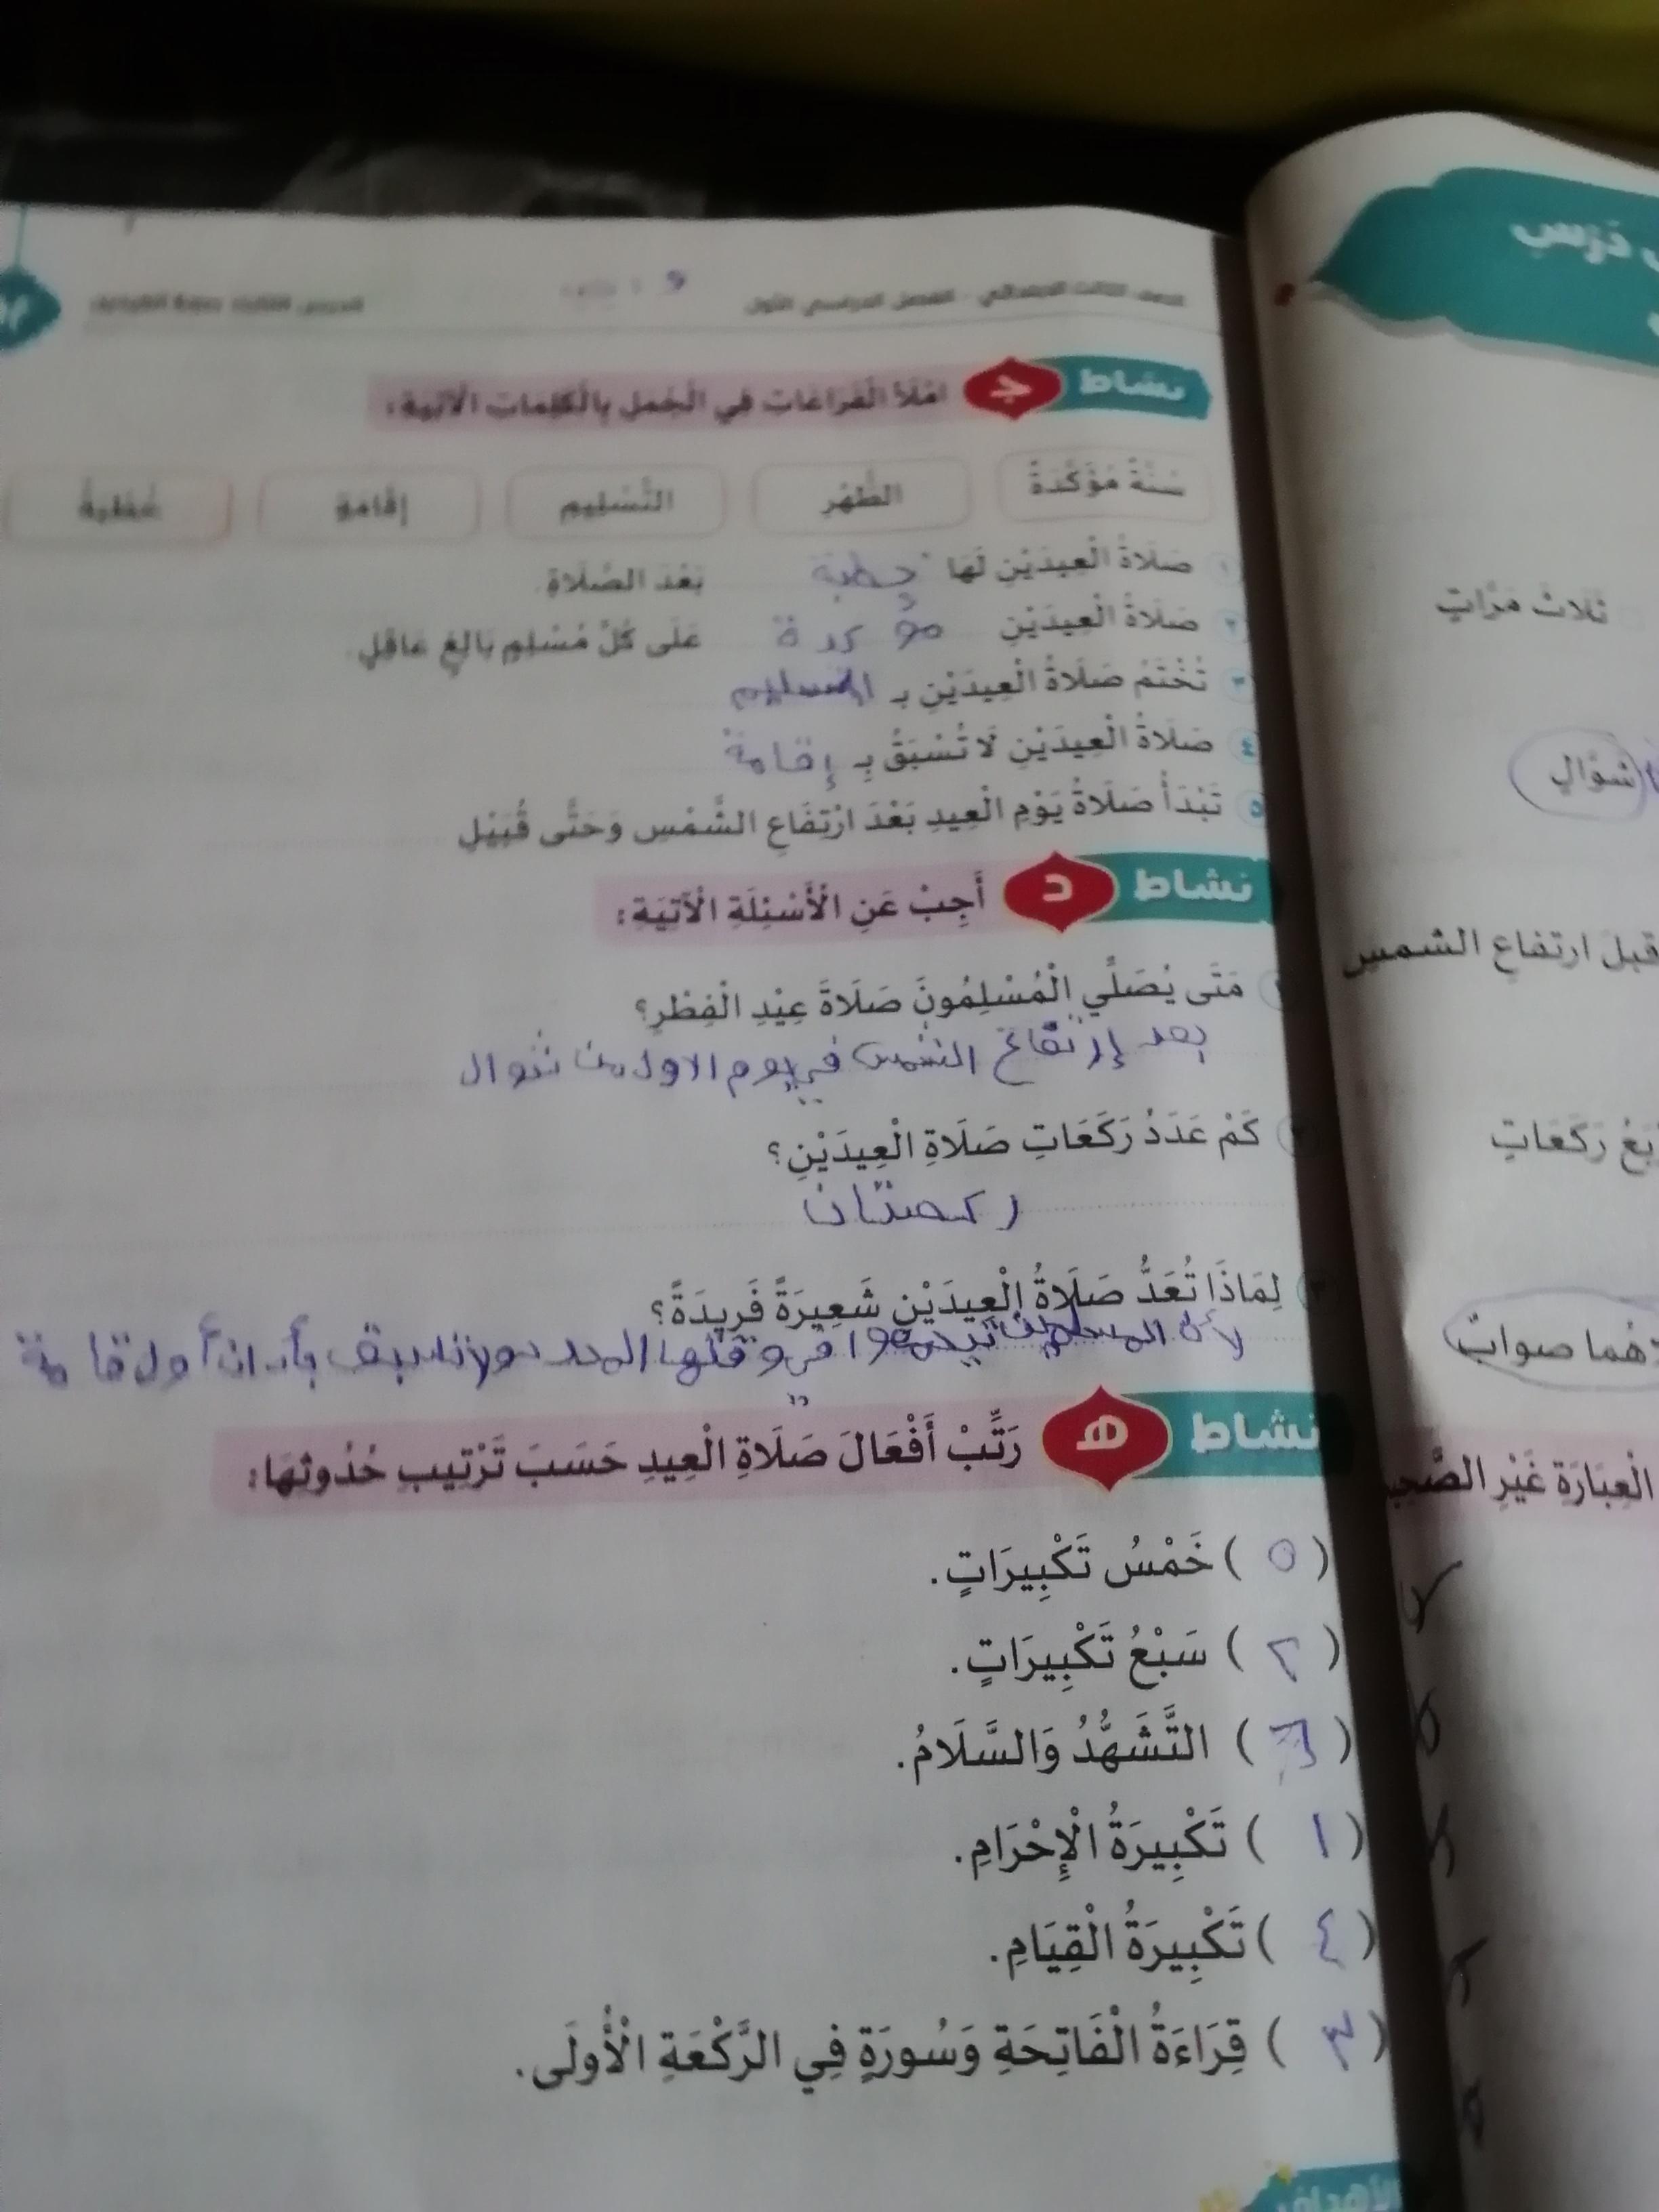 الصف الثالث الابتدائي - الفصل الدراسي الأول
نشاط ج امْلَأِ الْفَرَاغَاتِ فِي الْجُمَلِ بِالْكَلِمَاتِ الْآتِيَةِ:
سُنَّةٌ مُؤَكَّدَةٌ الظُّهْرِ التَّسْلِيمِ إِقَامَةٍ خُطْبَةٌ
١ صَلَاةُ الْعِيدَيْنِ لَهَا خطبة بَعْدَ الصَّلَاةِ.
٢ صَلَاةُ الْعِيدَيْنِ مؤكدة عَلَى كُلِّ مُسْلِمٍ بَالِغٍ عَاقِلٍ.
٣ تُخْتَمُ صَلَاةُ الْعِيدَيْنِ بـ التسليم
٤ صَلَاةُ الْعِيدَيْنِ لَا تُسْبَقُ بِـ إقامة
٥ تَبْدَأُ صَلَاةُ يَوْمِ الْعِيدِ بَعْدَ ارْتِفَاعِ الشَّمْسِ وَحَتَّى قُبَيْلِ
نشاط د أَجِبْ عَنِ الْأَسْئِلَةِ الْآتِيَةِ:
مَتَى يُصَلِّي الْمُسْلِمُونَ صَلَاةَ عِيْدِ الْفِطْرِ؟
بعد إرتفاع الشمس في يوم الاول من شوال
كَمْ عَدَدُ رَكَعَاتِ صَلَاةِ الْعِيدَيْنِ؟
ركعتان
٣ لِمَاذَا تُعَدُّ صَلَاةُ الْعِيدَيْنِ شَعِيرَةً فَرِيدَةً؟
لأن المسلمين في وقتها المحدد ولا تسبق بأذان أو إقامة
نشاط هـ رَتِّبْ أَفْعَالَ صَلَاةِ الْعِيدِ حَسَبَ تَرْتِيبِ حُدُوثِهَا:
( ٥ ) خَمْسُ تَكْبِيرَاتٍ.
( ٢ ) سَبْعُ تَكْبِيرَاتٍ.
( ٦ ) التَّشَهُّدُ وَالسَّلَامُ.
( ١ ) تَكْبِيرَةُ الْإِحْرَامِ.
( ٤ ) تَكْبِيرَةُ الْقِيَامِ.
( ٣ ) قِرَاءَةُ الْفَاتِحَةِ وَسُورَةٍ فِي الرَّكْعَةِ الْأُولَى.
الأهداف
دَرْسِ
ثَلَاثَ مَرَّاتٍ
شَوَّالٍ
قبل ارتفاع الشمس
رَكَعَاتٍ
هما صواب
الْعِبَارَةِ غَيْرِ